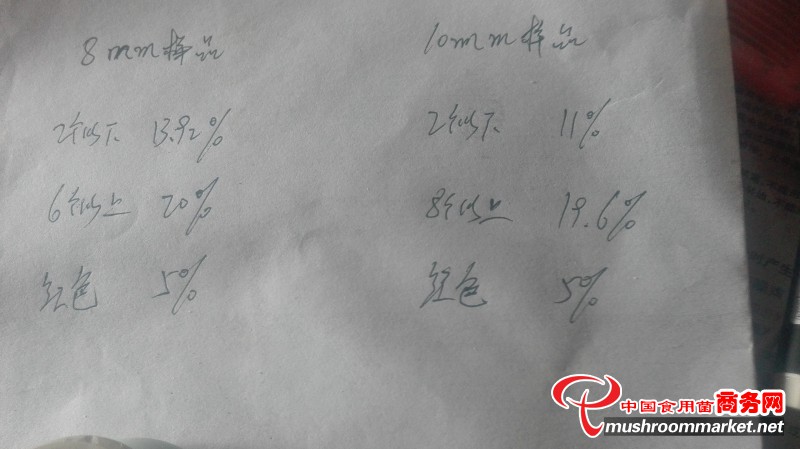 8mm样品
2个以下 13.92%
6个以上 20%
红色 5%
10mm样品
2个以下 11%
8个以上 19.6%
红色 5%
中国食用菌商务网
mushroommarket.net